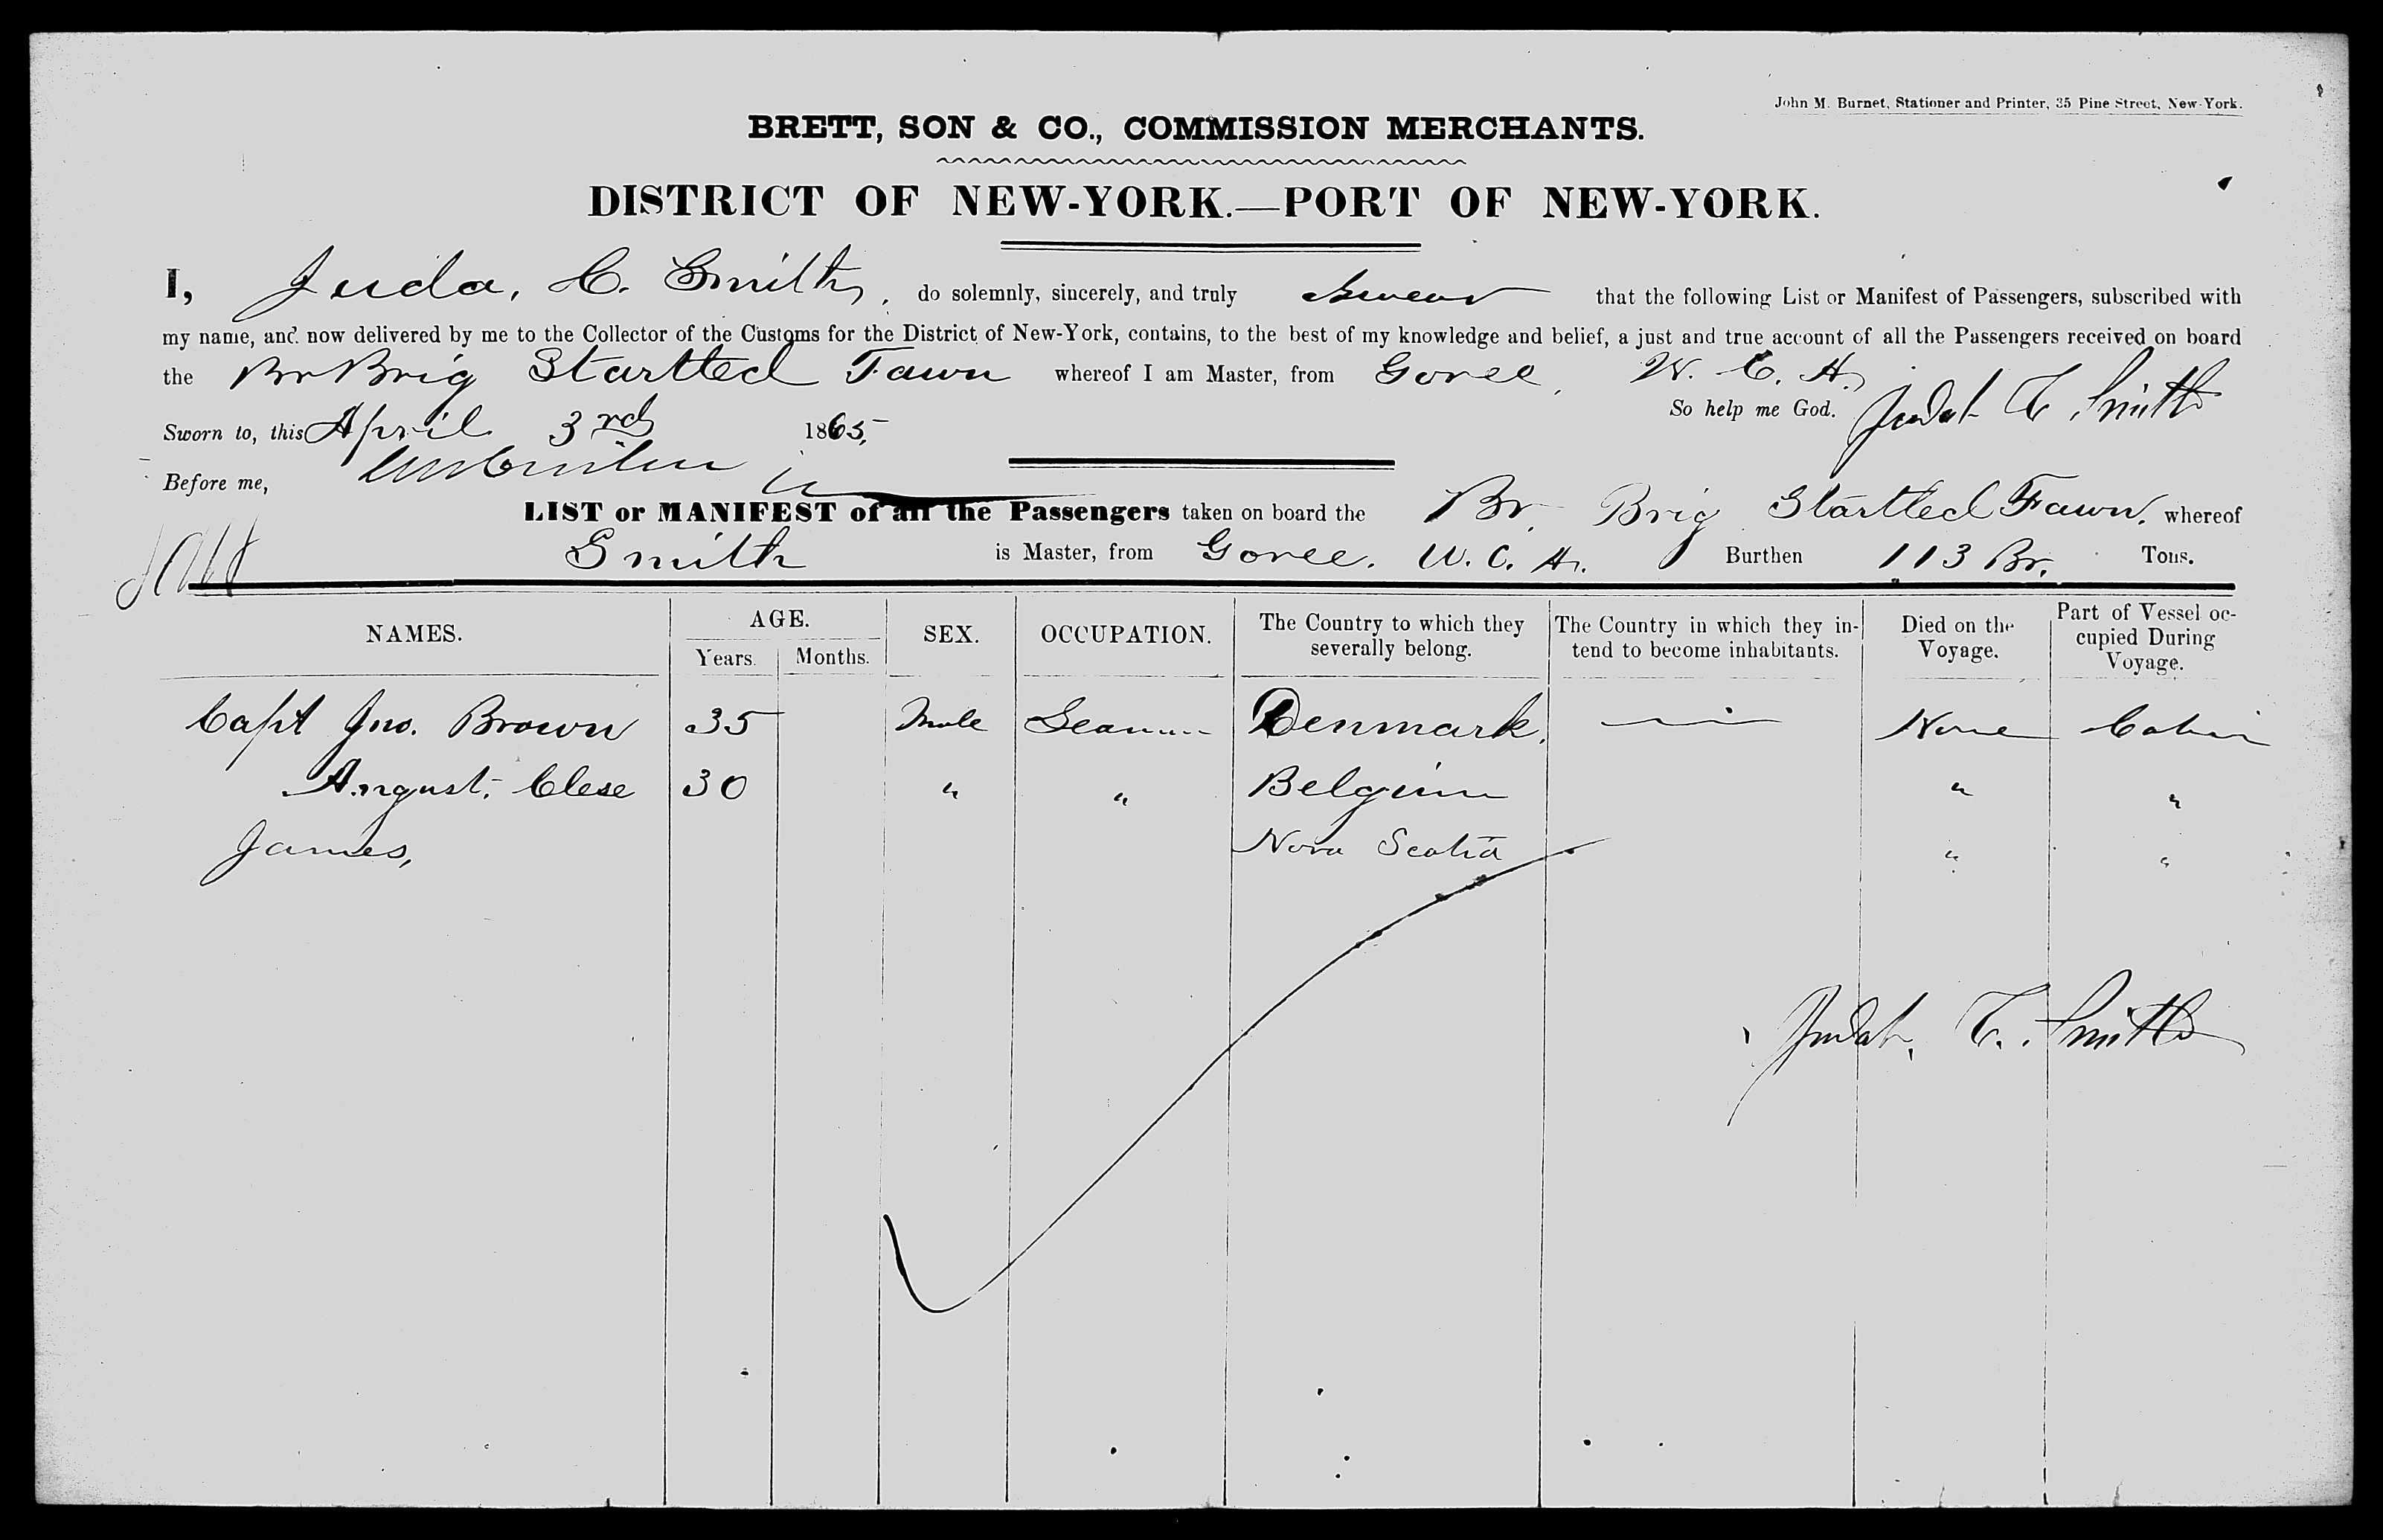 John M. Burnet, Stationer and Printer, 35 Pine Street, New-York.
BRETT, SON & CO., COMMISSION MERCHANTS.
DISTRICT OF NEW-YORK.—PORT OF NEW-YORK.
I, Juda, C. Smith, do solemnly, sincerely, and truly Swear that the following List or Manifest of Passengers, subscribed with
my name, and now delivered by me to the Collector of the Customs for the District of New-York, contains, to the best of my knowledge and belief, a just and true account of all the Passengers received on board
the Br Brig Startled Fawn whereof I am Master, from Goree, W. C. A.
So help me God. Judah C Smith
Sworn to, this April 3rd 1865,
Before me,
LIST or MANIFEST of all the Passengers taken on board the Br. Brig Startled Fawn. whereof
Smith is Master, from Goree. W. C. A. Burthen 113 Br. Tons.
NAMES. AGE. Years. Months. SEX. OCCUPATION. The Country to which they severally belong. The Country in which they intend to become inhabitants. Died on the Voyage. Part of Vessel occupied During Voyage.
Capt Jno. Brown 35 Male Seaman Denmark. None Cabin
August. Clese 30 " " Belgium " "
James, Nova Scotia " "
Judah. C. Smith